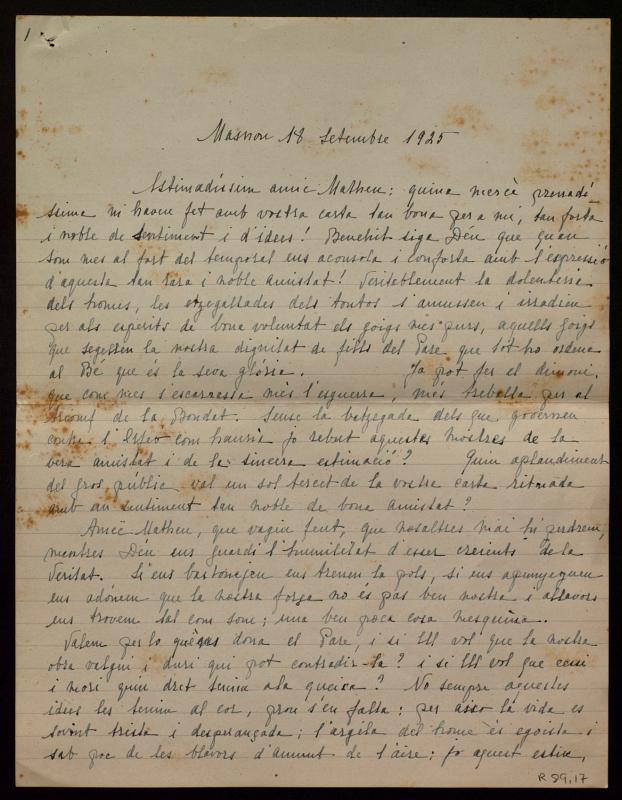 1
Masnou 18 setembre 1925
Estimadíssim amic Matheu: quina mercè
ssima m'haveu fet amb vostra carta tan bona per a mi, tan forta
i noble de sentiment i d'idees! Benehit siga Déu que quan
som mes al fort del temporal ens aconsola i conforta amb l'expressió
d'aquesta tan rara i noble amistat! Veritablement la dolenteria
dels homes, les etzegallades dels tontos s'amussen i irradien
per als esperits de bona voluntat els goigs mes purs, aquells goigs
que segellen la nostra dignitat de fills del Pare que tot ho ordena
al Bé que és la seva glòria. Ja pot fer el dimoni,
que com mes s'escarrassa mes l'esguerra, més treballa per al
triomf de la Bondat. Sense la batzegada dels que governen
contra l'Orfeó com hauria jo rebut aquestes mostres de la
vera amistat i de la sincera estimació? Quin aplaudiment
del gros públic val un sol tercet de la vostra carta ritmada
amb un sentiment tan noble de bona amistat?
Amic Matheu, que vagin fent, que nosaltres mai hi perdrem,
mentres Déu ens guardi l'humilitat d'esser creients de la
Veritat. Si ens bastonegen ens treuen la pols, si ens apunyeguen
ens adónem que la nostra força no es pas ben nostra i allavors
ens trovem tal com som; una ben poca cosa mesquina.
Valem per lo que ens dona el Pare, i si Ell vol que la nostra
obra valgui i duri qui pot contradir-la? i si Ell vol que cessi
i mori quin dret tenim a la queixa? No sempre aquestes
idees les tenim al cor, prou s'en falta; per aixo la vida es
sovint trista i desperançada; l'argila del home és egoista i
sab poc de les blavors d'amunt de l'aire; jo aquest estiu,
R 89,17